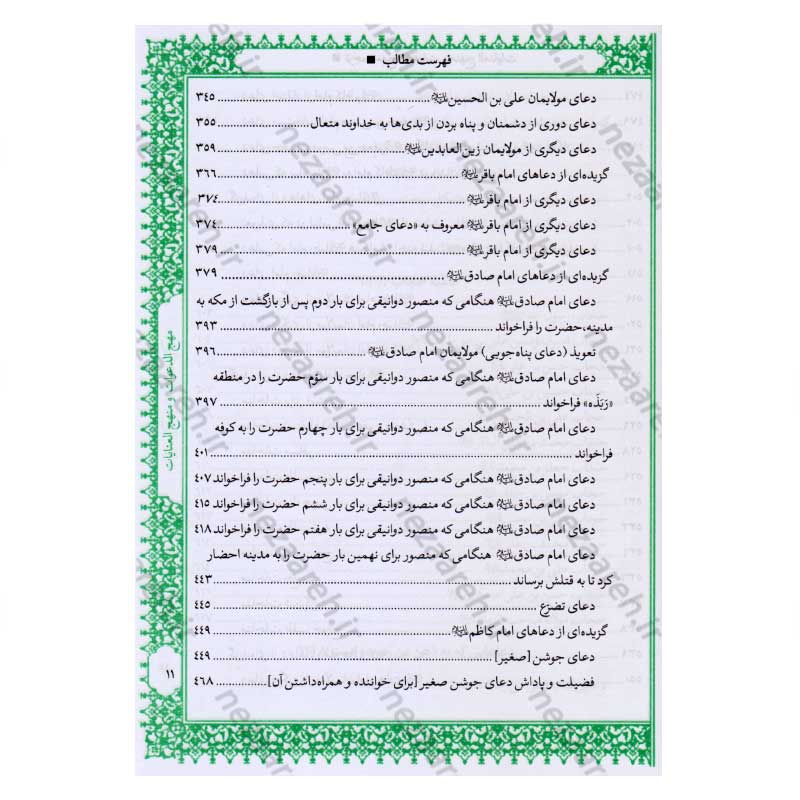 فهرست مطالب ■
دعای مولایمان علی بن الحسین علیه‌السلام ... ۳۴۵
دعای دوری از دشمنان و پناه بردن از بدی‌ها به خداوند متعال ... ۳۵۵
دعای دیگری از مولایمان زین‌العابدین علیه‌السلام ... ۳۵۹
گزیده‌ای از دعاهای امام باقر علیه‌السلام ... ۳۶۶
دعای دیگری از امام باقر علیه‌السلام ... ۳۷۴
دعای دیگری از امام باقر علیه‌السلام معروف به «دعای جامع» ... ۳۷۴
دعای دیگری از امام باقر علیه‌السلام ... ۳۷۹
گزیده‌ای از دعاهای امام صادق علیه‌السلام ... ۳۷۹
دعای امام صادق علیه‌السلام هنگامی که منصور دوانیقی برای بار دوم پس از بازگشت از مکه به
مدینه، حضرت را فراخواند ... ۳۹۳
تعویذ (دعای پناه‌جویی) مولایمان امام صادق علیه‌السلام ... ۳۹۶
دعای امام صادق علیه‌السلام هنگامی که منصور دوانیقی برای بار سوّم حضرت را در منطقه
«رَبَذَه» فراخواند ... ۳۹۷
دعای امام صادق علیه‌السلام هنگامی که منصور دوانیقی برای بار چهارم حضرت را به کوفه
فراخواند ... ۴۰۱
دعای امام صادق علیه‌السلام هنگامی که منصور دوانیقی برای بار پنجم حضرت را فراخواند ۴۰۷
دعای امام صادق علیه‌السلام هنگامی که منصور دوانیقی برای بار ششم حضرت را فراخواند ۴۱۵
دعای امام صادق علیه‌السلام هنگامی که منصور دوانیقی برای بار هفتم حضرت را فراخواند ۴۱۸
دعای امام صادق علیه‌السلام هنگامی که منصور برای نهمین بار حضرت را به مدینه احضار
کرد تا به قتلش برساند ... ۴۴۳
دعای تضرّع ... ۴۴۵
گزیده‌ای از دعاهای امام کاظم علیه‌السلام ... ۴۴۹
دعای جوشن [صغیر] ... ۴۴۹
فضیلت و پاداش دعای جوشن صغیر [برای خواننده و همراه‌داشتن آن] ... ۴۶۸
مهج الدعوات و منهج العنایات
۱۱
nezaareh.ir